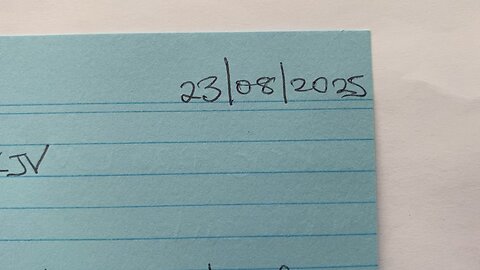 23/08/2025
KJV